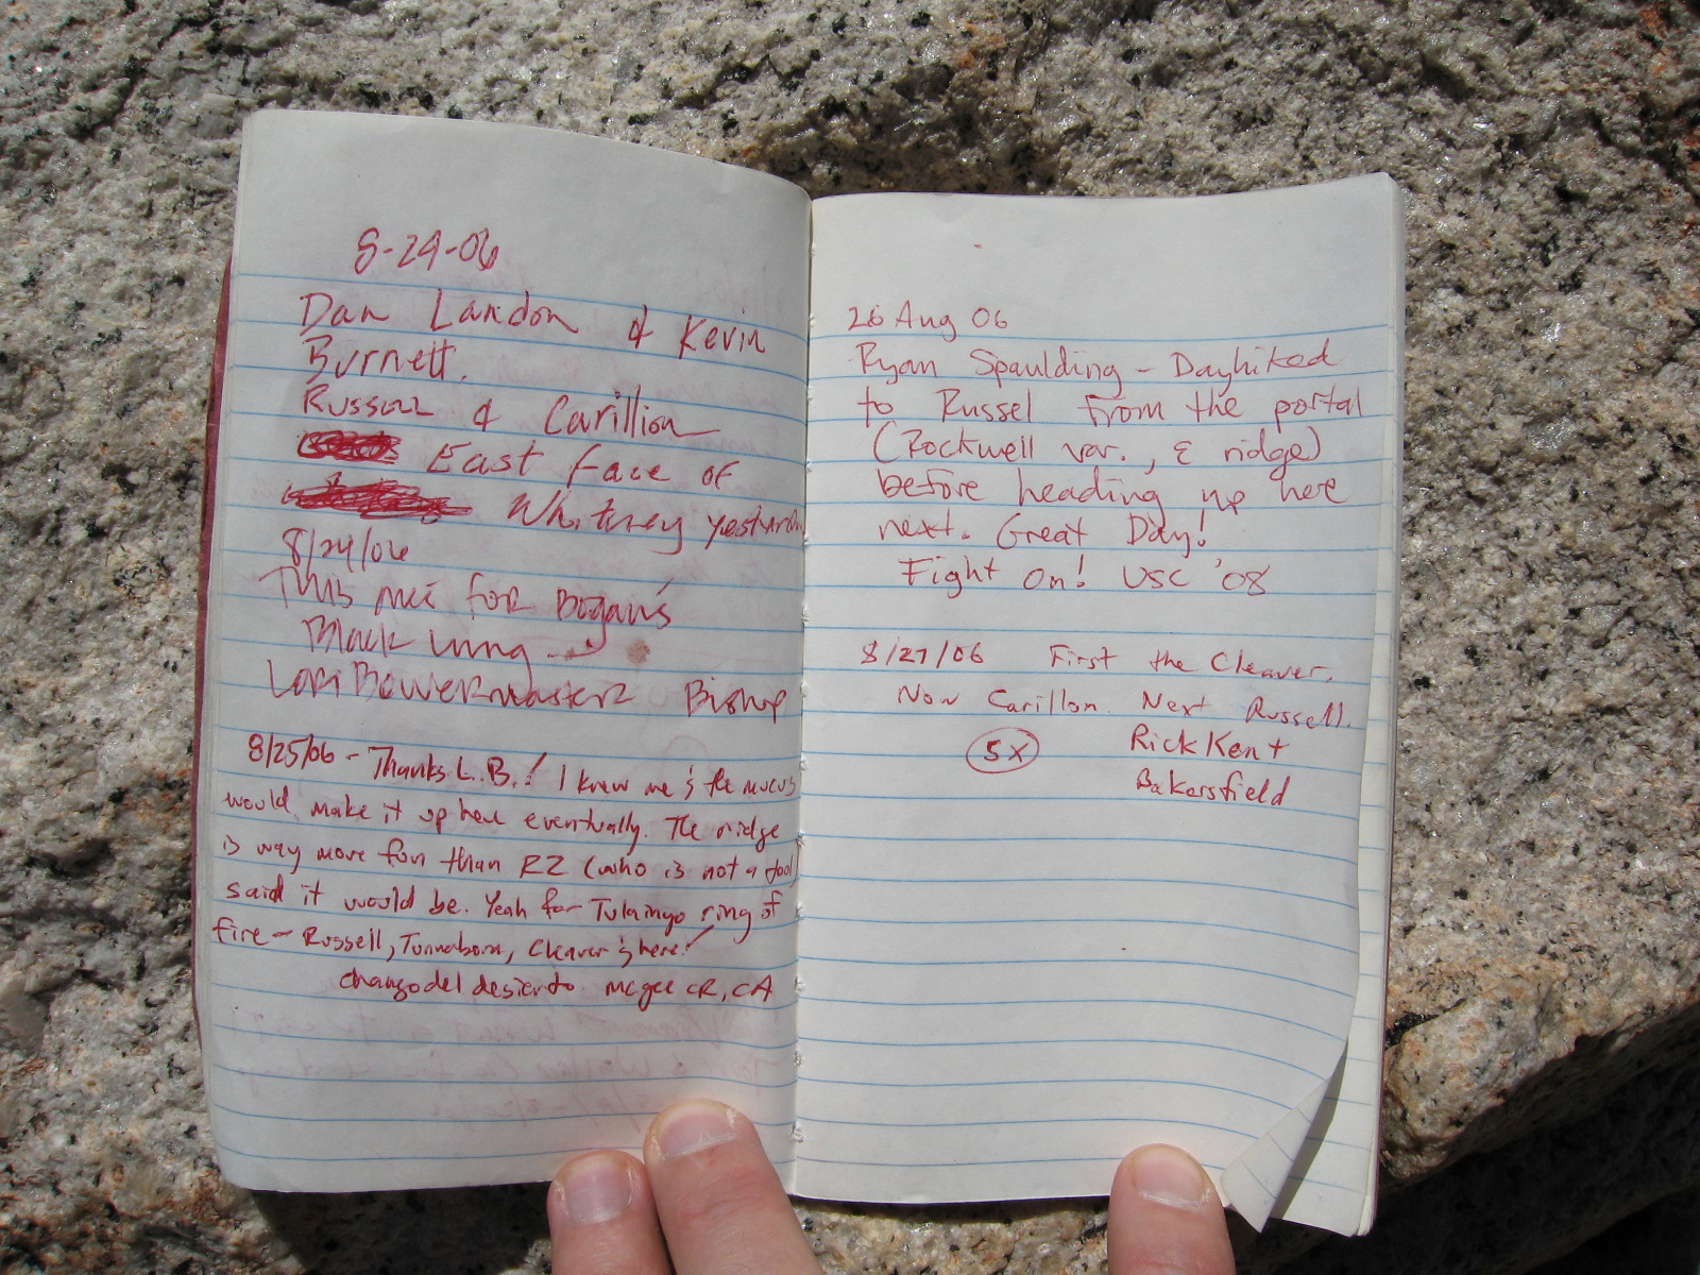 8-24-06
Dan Landon & Kevin
Burnett.
Russell & Carillion
East face of
Whitney yesterday
8/24/06
This one's for Bogan's
Black lung
Lori Bowermaster Bishop
8/25/06 - Thanks L.B.! I knew me & the mucus
would make it up here eventually. The ridge
is way more fun than RZ (who is not a fool)
said it would be. Yeah for Tulainyo ring of
fire - Russell, Tunnabora, Cleaver & here!
changodeldesierto mcgee CR, CA
26 Aug 06
Ryan Spaulding - Dayhiked
to Russel from the portal
(Rockwell var., E ridge)
before heading up here
next. Great Day!
Fight On! USC '08
8/27/06 First the Cleaver.
Now Carillon. Next Russell.
5x Rick Kent
Bakersfield